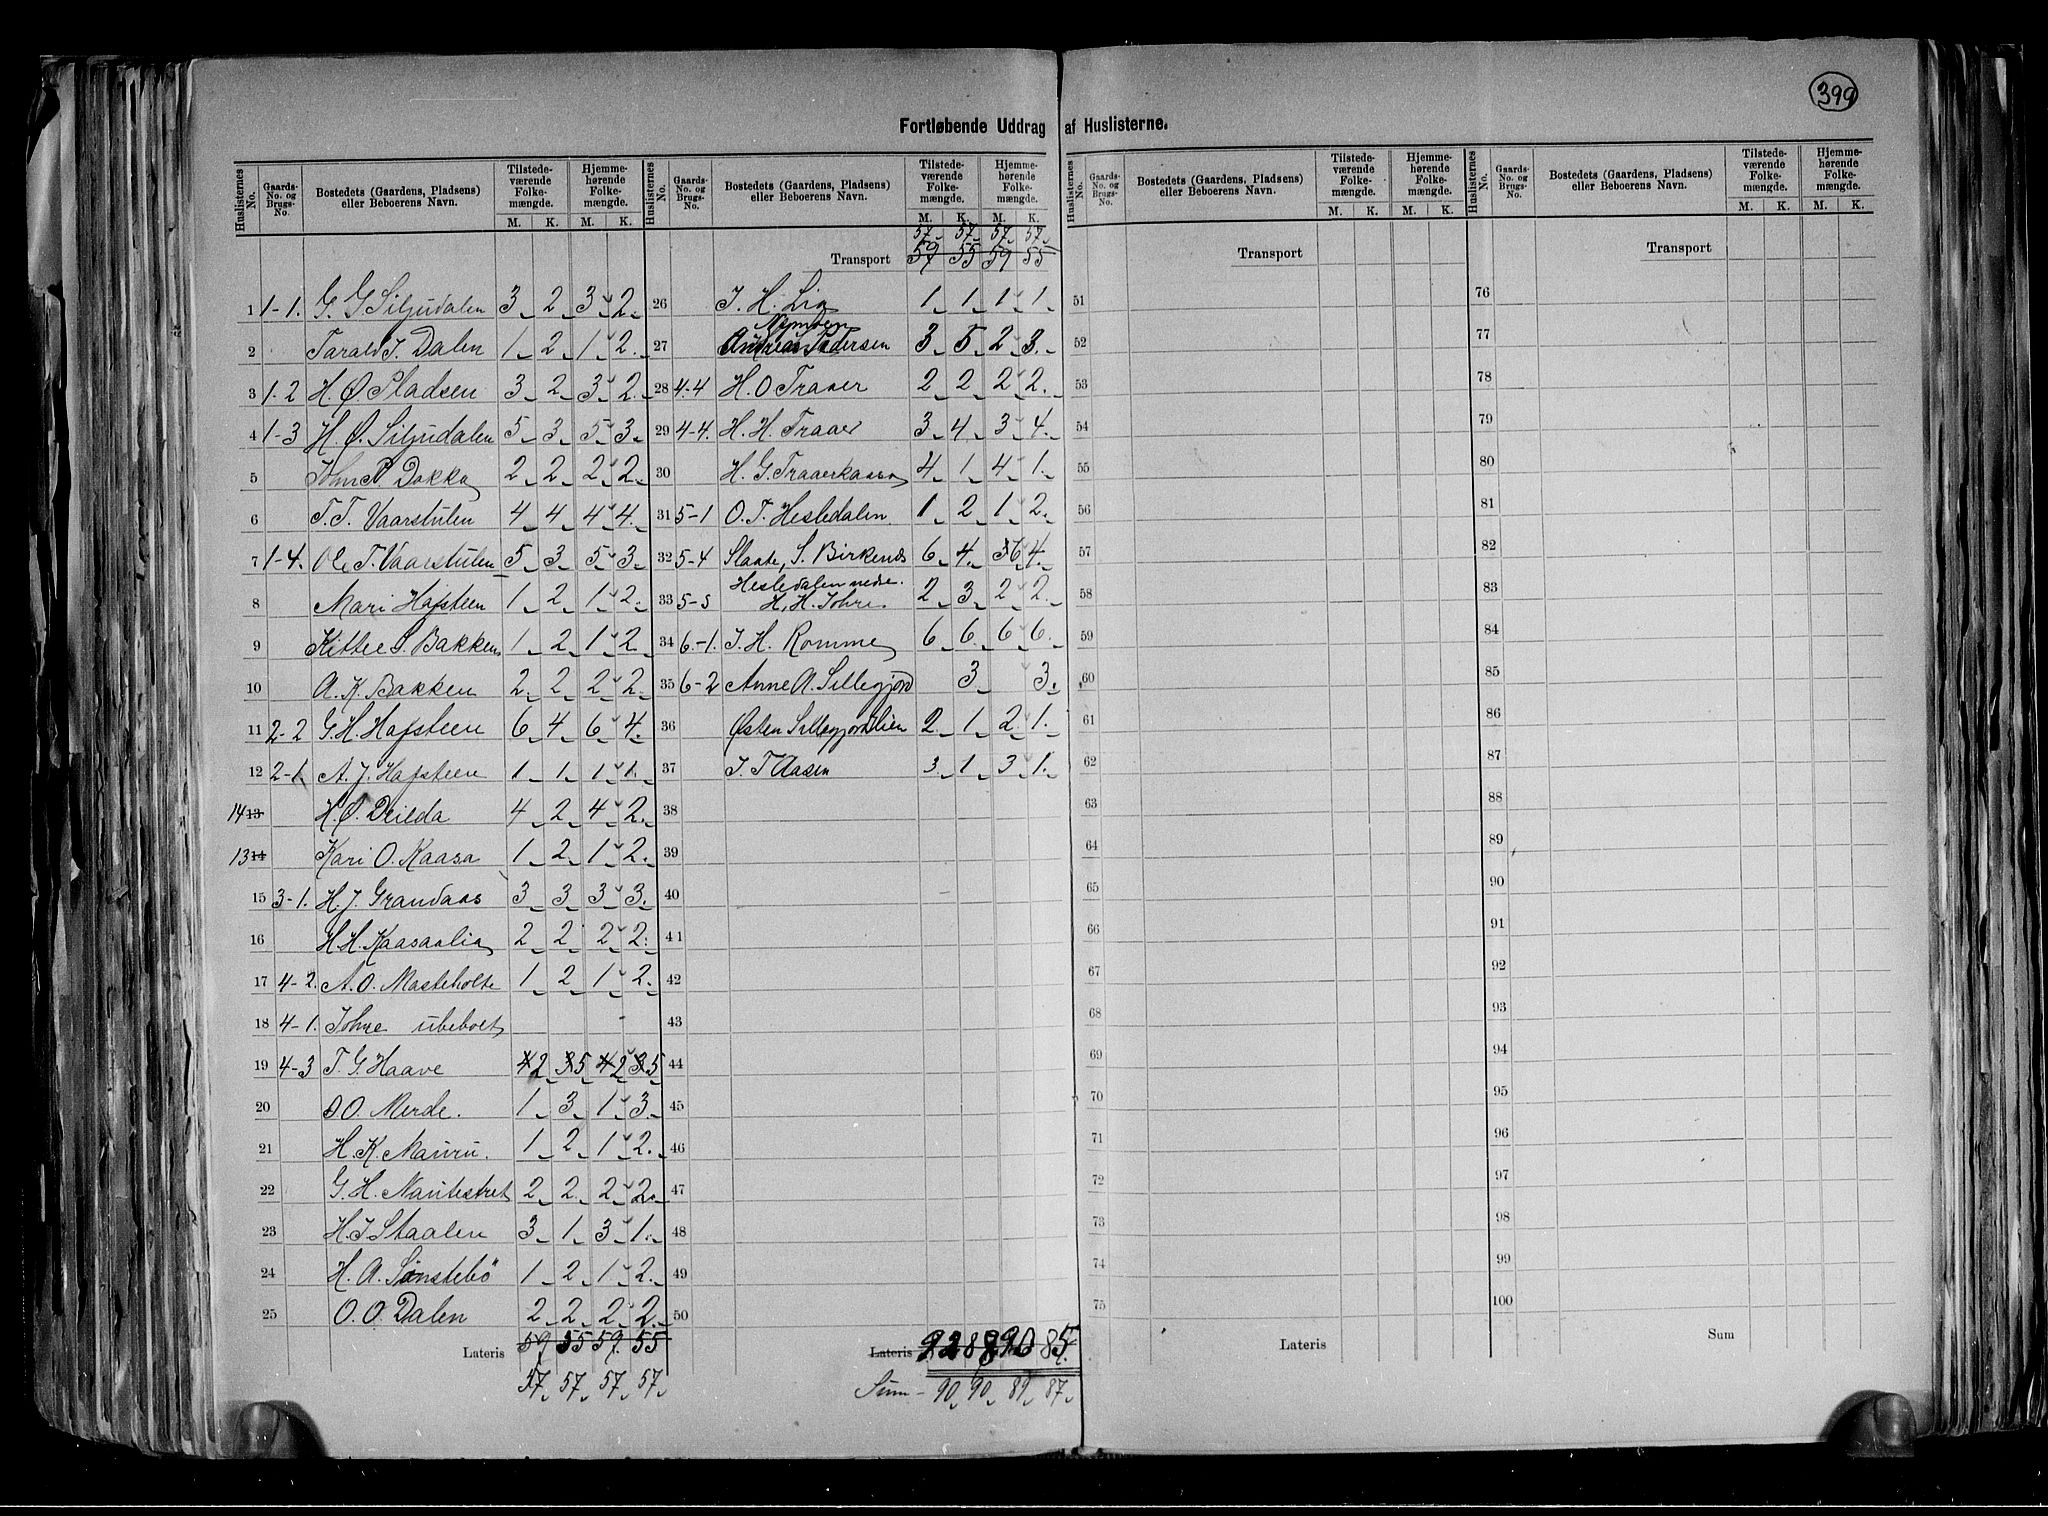 399
Fortløbende Uddrag af Huslisterne.
Huslisternes No. Gaards-No. og Brugs-No. Bostedets (Gaardens, Pladsens) eller Beboerens Navn. Tilstedeværende Folkemængde. M. K. Hjemmehørende Folkemængde. M. K.
1 1-1. G. G. Siljudalen 3 2 3 2
2 Tarald J. Dalen 1 2 1 2
3 1-2 H. Ø. Pladsen 3 2 3 2
4 1-3 H. Ø. Siljudalen 5 3 5 3
5 John P. Dokka 2 2 2 2
6 T. T. Vaarstulen 4 4 4 4
7 1-4. Ole T. Vaarstulen 5 3 5 3
8 Mari Hafsteen 1 2 1 2
9 Kittel S. Bakken 1 2 1 2
10 A. K. Bakken 2 2 2 2
11 2-2 G. H. Hafsteen 6 4 6 4
12 2-1. A. J. Hafsteen 1 1 1 1
14 13 H. Ø. Deilda 4 2 4 2
13 14 Kari O. Kaasa 1 2 1 2
15 3-1. H. J. Grandaas 3 3 3 3
16 H. H. Kaasaalia 2 2 2 2
17 4-2. A. O. Masteholte 1 2 1 2
18 4-1. Johre ubeboet
19 4-3 T. G. Haave 4 2 3 5 4 2 3 5
20 O. Merde. 1 3 1 3
21 H. K. 1 2 1 2
22 G. H. 2 2 2 2
23 H. J. Staalen 3 1 3 1
24 H. A. Sønstebö 1 2 1 2
25 O. O. Dalen 2 2 2 2
Lateris 59 55 59 55
57 57 57 57
57 57 57 57
Transport 59 55 59 55
26 J. H. Lia 1 1 1 1
27 Andreas Pedersen 3 5 2 3
28 4-4 H. O. Traaer 2 2 2 2
29 4-4. H. H. Traaer 3 4 3 4
30 H. G. Traaerkaasa 4 1 4 1
31 5-1 O. T. Hesledalen 1 2 1 2
32 5-4 Slaate, S. Birkenæs 6 4 6 4
Hesledalen nedre.
33 5-5 H. H. Johre 2 3 2 2
34 6-1. J. H. Romme 6 6 6 6
35 6-2 Anne A. Sillegjord 3 3
36 Østen Sillegjordlien 2 1 2 1
37 J. T. Aasen 3 1 3 1
38
39
40
41
42
43
44
45
46
47
48
49
50
Lateris 85
Sum 90 90 89 87
Huslisternes No. Gaards-No. og Brugs-No. Bostedets (Gaardens, Pladsens) eller Beboerens Navn. Tilstedeværende Folkemængde. M. K. Hjemmehørende Folkemængde. M. K.
Transport
51
52
53
54
55
56
57
58
59
60
61
62
63
64
65
66
67
68
69
70
71
72
73
74
75
Lateris
Transport
76
77
78
79
80
81
82
83
84
85
86
87
88
89
90
91
92
93
94
95
96
97
98
99
100
Sum